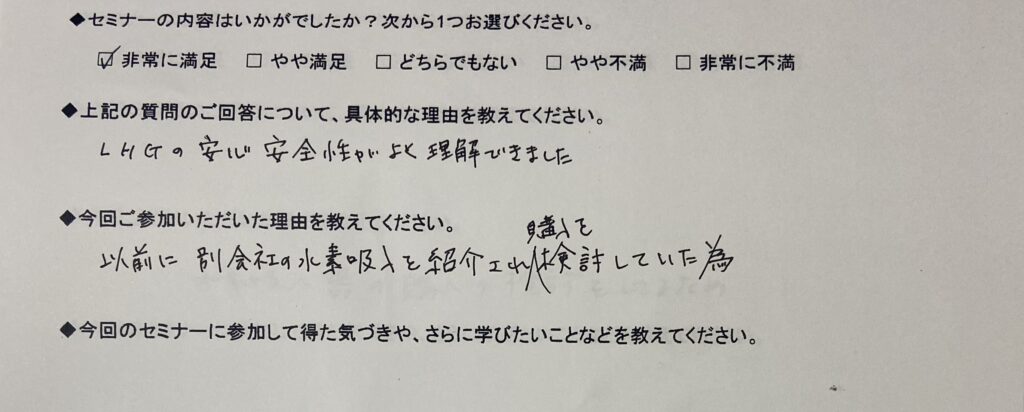 ◆セミナーの内容はいかがでしたか?次から1つお選びください。
☑ 非常に満足 □ やや満足 □ どちらでもない □ やや不満 □ 非常に不満
◆上記の質問のご回答について、具体的な理由を教えてください。
LHGの安心安全性がよく理解できました
◆今回ご参加いただいた理由を教えてください。
購入を
以前に別会社の水素吸入を紹介され検討していた為
◆今回のセミナーに参加して得た気づきや、さらに学びたいことなどを教えてください。